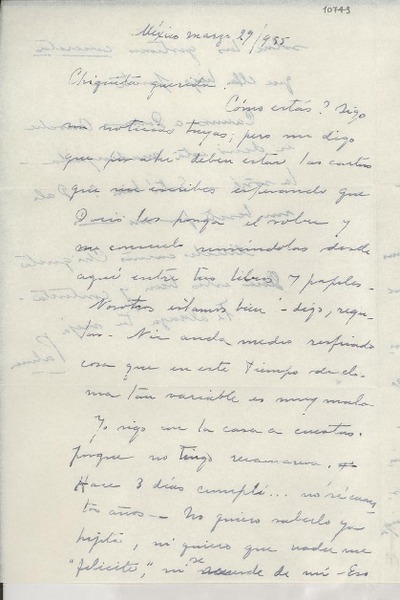 10743
México marzo 29/955
Chiquita querida:
Cómo estás? Sigo
sin noticias tuyas; pero me digo
que por ahí deben estar las cartas
que me escribes esperando que
Doris les ponga el sobre y
me consuelo mirándolas desde
aquí entre tus libros y papeles.
Nosotros estamos bien - digo, regu-
lar. - anda medio resfriado
cosa que en este tiempo de cli-
ma tan variable es muy mala
Yo sigo con la casa a cuestas.
porque no tengo recamarera.
Hace 3 días cumplí... no sé cuan
tos años - No quiero saberlo ya
hijita, ni quiero que nadie me
"felicite", ni se acuerde de mí - Eso